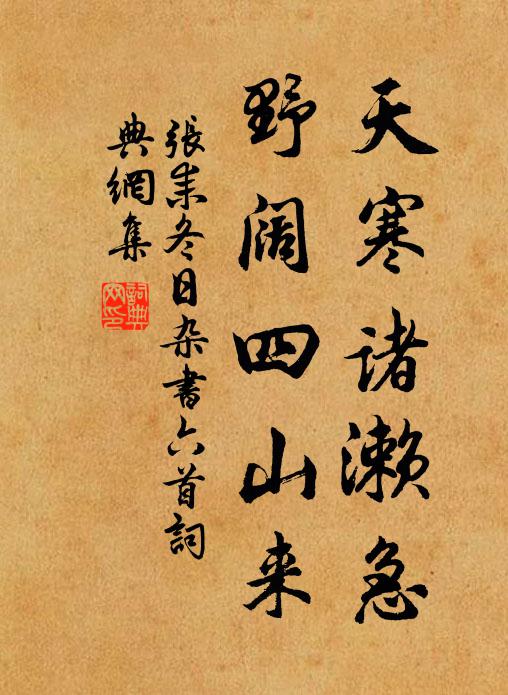 天寒诸濑急
野阔四山来
張耒冬日杂書六首詞
典網集
詞典
网印